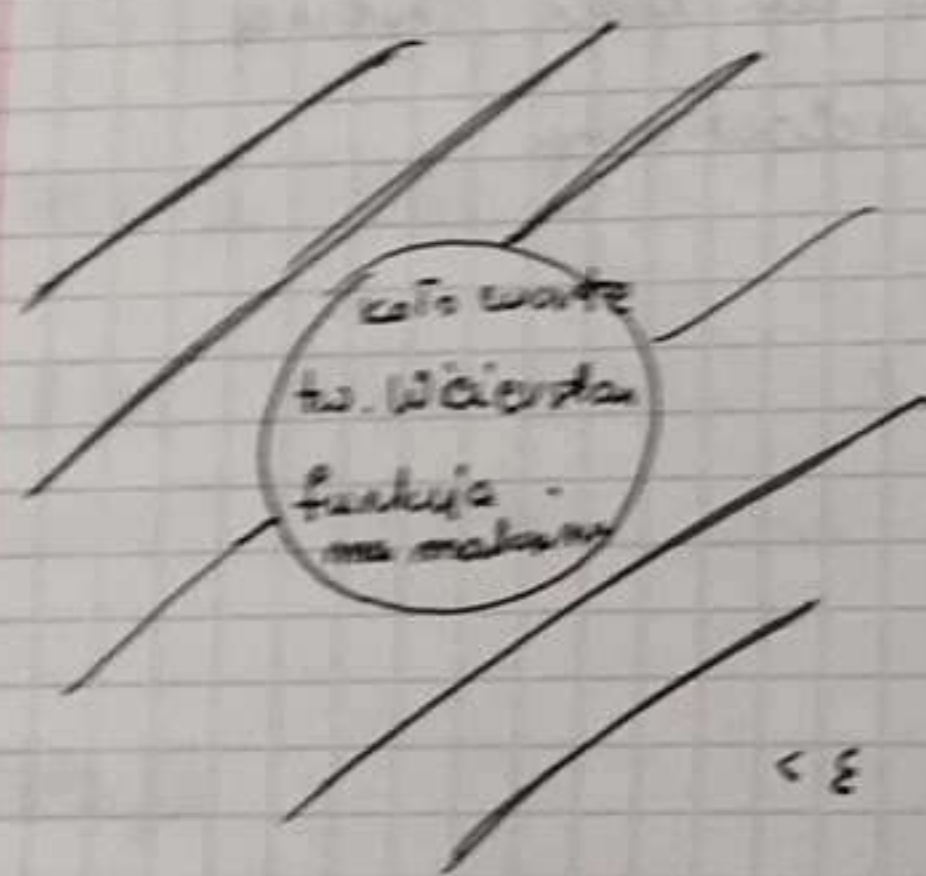 koło zwarte
tw. Weierstrass
funkcja
ma maksimum
< ε